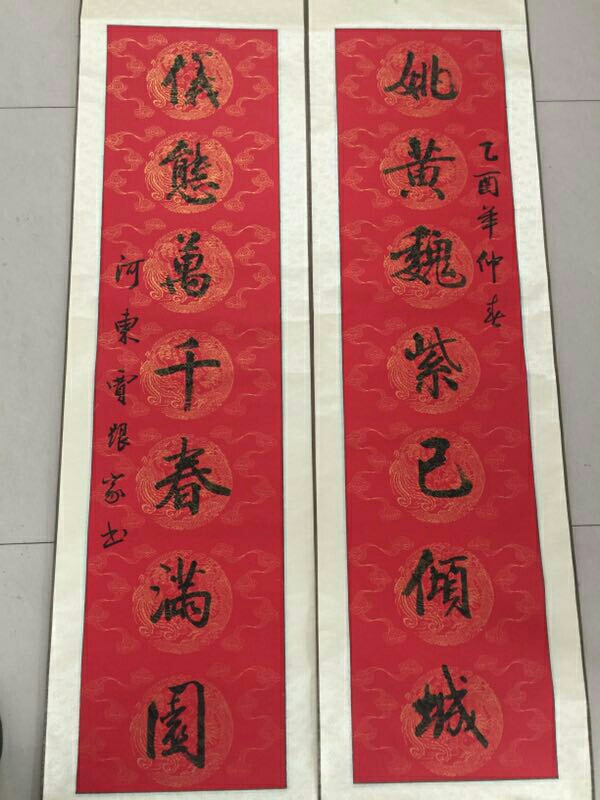 姚黄魏紫已傾城
乙酉年仲春
儀態萬千春滿園
河東賈銀家书